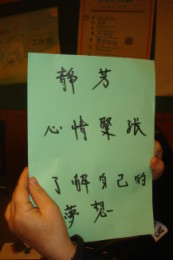 靜芳
心情緊張
了解自己的
夢想